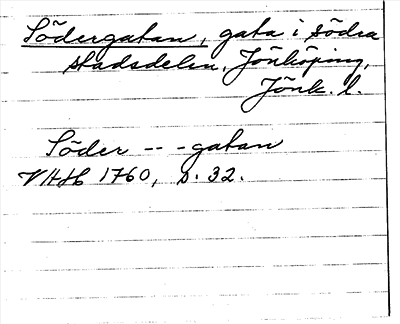 Södergatan, gata i södra
stadsdelen, Jönköping,
Jönk. l.
Söder -- -gatan
VHH 1760, s. 32.